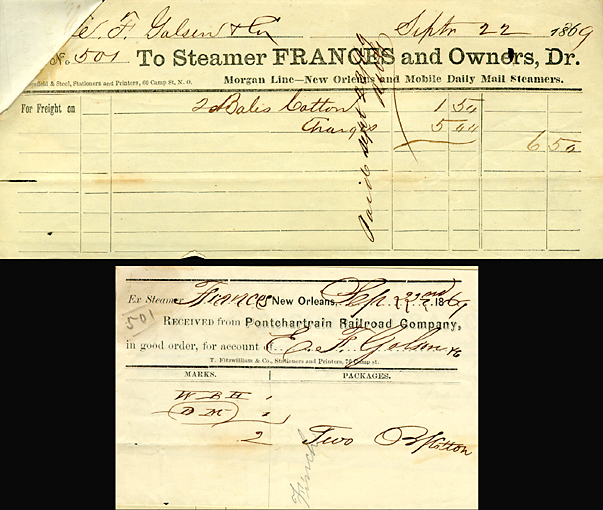 E. F. Golsen & Co Septr 22 1869
No. 501 To Steamer FRANCES and Owners, Dr.
& Steel, Stationers and Printers, 60 Camp St, N. O. Morgan Line—New Orleans and Mobile Daily Mail Steamers.
For Freight on 2 Bales Cotton 1 50
Charges 5 00
6 50
Paid Sept
Ex Steamer Frances New Orleans, Sep 22nd 1869
501
RECEIVED from Pontchartrain Railroad Company,
in good order, for account of E. F. Golsen & Co
T. Fitzwilliam & Co., Stationers and Printers, 76 Camp st.
MARKS. PACKAGES.
W B H 1
D M 1
2 Two B/Cotton
French